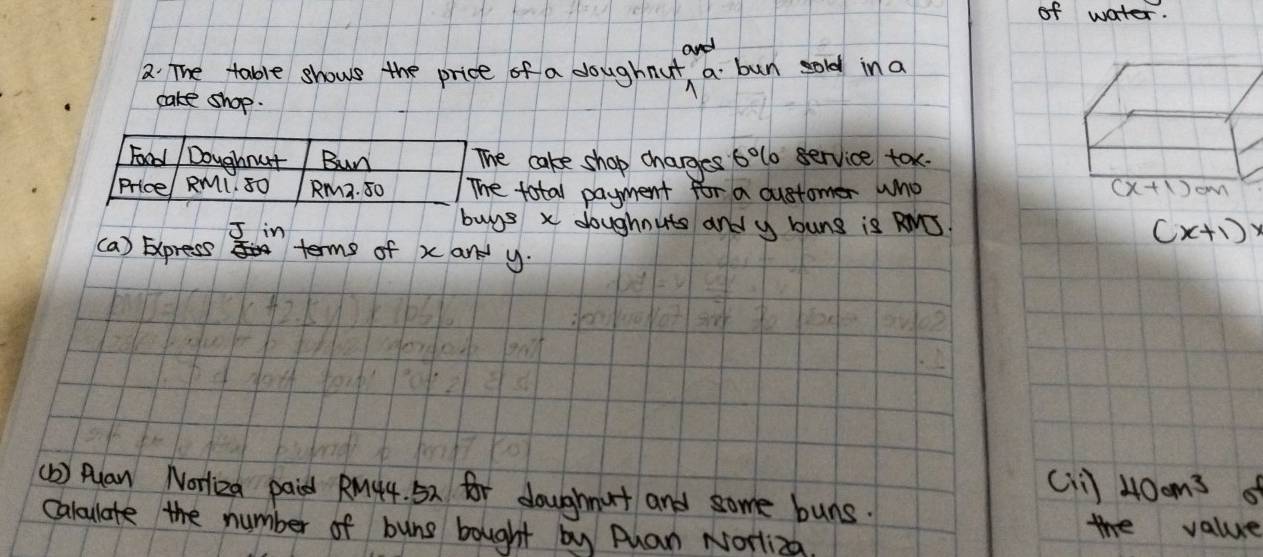 of water.
2. The table shows the price of a doughnut and a bun sold in a
cake shop.
Food Doughnut Bun
Price RM1.80 RM2.80
The cake shop charges 6% service tax.
The total payment for a customer who
buys x doughnuts and y buns is RMJ.
(a) Express J in terms of x and y.
(b) Puan Norliza paid RM44.52 for doughnut and some buns.
Calculate the number of buns bought by Puan Norliza.
(x+1)cm
(x+1)x
(ii) 40cm³ of
the value